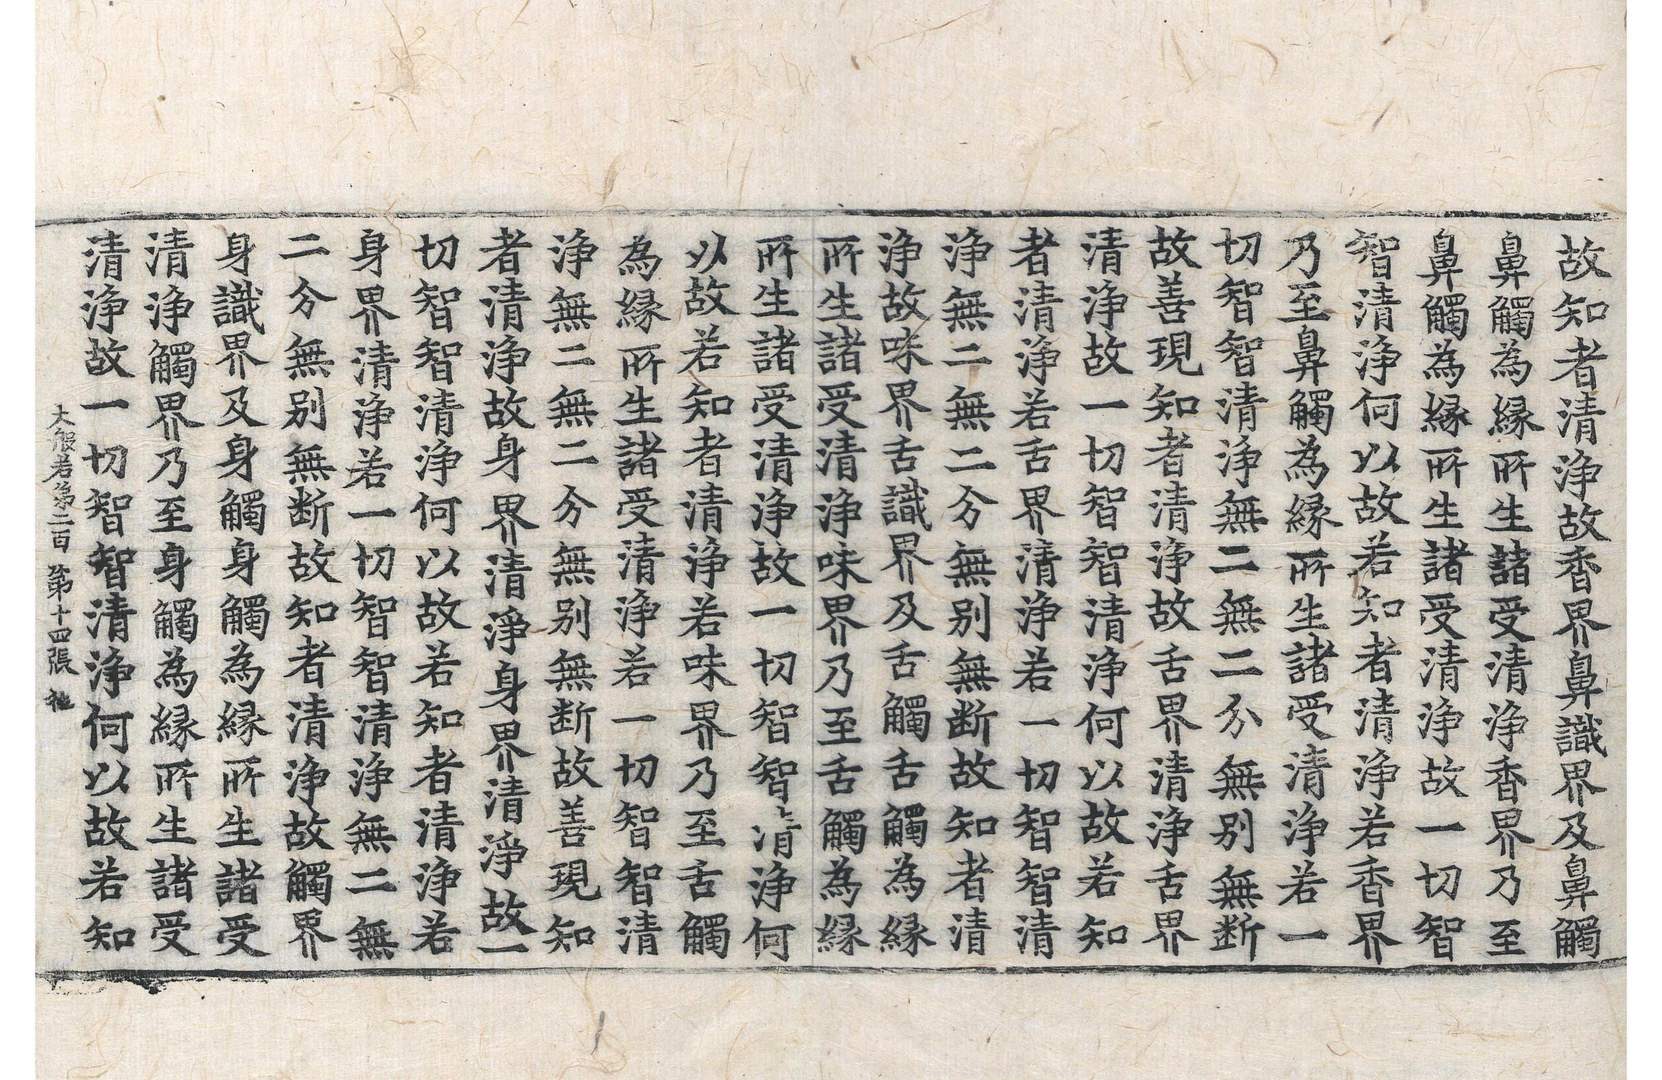 故知者清淨故香界鼻識界及鼻觸
鼻觸為緣所生諸受清淨香界乃至
鼻觸為緣所生諸受清淨故一切智
智清淨何以故若知者清淨若香界
乃至鼻觸為緣所生諸受清淨若一
切智智清淨無二無二分無別無斷
故善現知者清淨故舌界清淨舌界
清淨故一切智智清淨何以故若知
者清淨若舌界清淨若一切智智清
淨無二無二分無別無斷故知者清
淨故味界舌識界及舌觸舌觸為緣
所生諸受清淨味界乃至舌觸為緣
所生諸受清淨故一切智智清淨何
以故若知者清淨若味界乃至舌觸
為緣所生諸受清淨若一切智智清
淨無二無二分無別無斷故善現知
者清淨故身界清淨身界清淨故一
切智智清淨何以故若知者清淨若
身界清淨若一切智智清淨無二無
二分無別無斷故知者清淨故觸界
身識界及身觸身觸為緣所生諸受
清淨觸界乃至身觸為緣所生諸受
清淨故一切智智清淨何以故若知
大般若第二百 第十四張